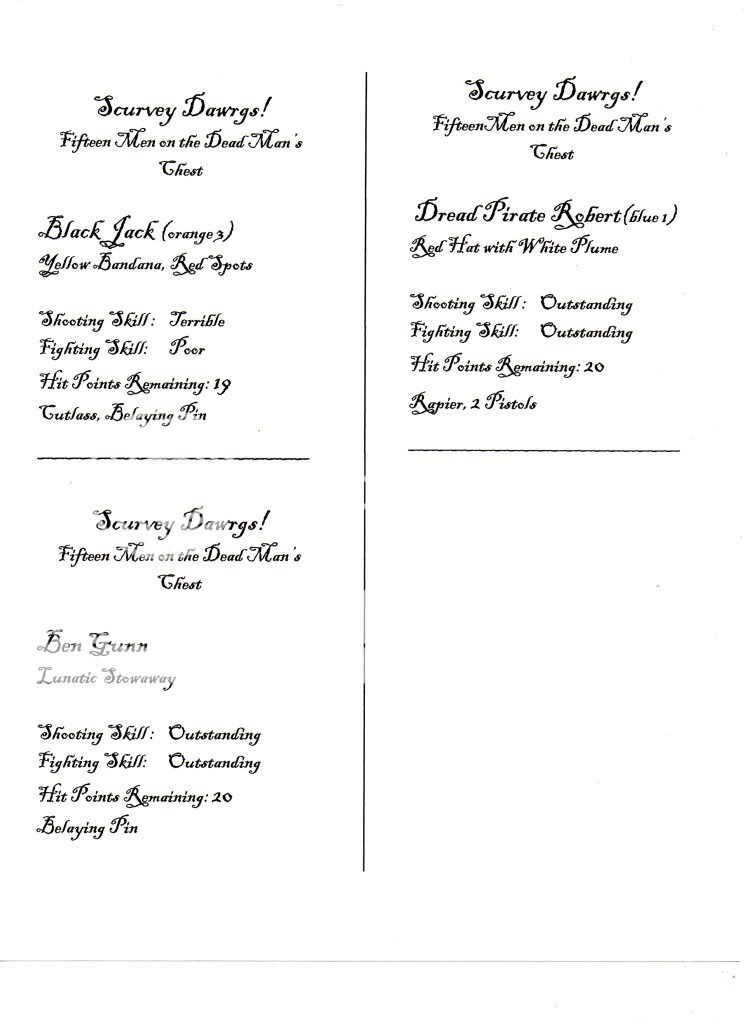 Scurvey Dawrgs!
Fifteen Men on the Dead Man's
Chest
Black Jack (orange 3)
Yellow Bandana, Red Spots
Shooting Skill: Terrible
Fighting Skill: Poor
Hit Points Remaining: 19
Cutlass, Belaying Pin
Scurvey Dawrgs!
Fifteen Men on the Dead Man's
Chest
Ben Gunn
Lunatic Stowaway
Shooting Skill: Outstanding
Fighting Skill: Outstanding
Hit Points Remaining: 20
Belaying Pin
Scurvey Dawrgs!
FifteenMen on the Dead Man's
Chest
Dread Pirate Robert (blue 1)
Red Hat with White Plume
Shooting Skill: Outstanding
Fighting Skill: Outstanding
Hit Points Remaining: 20
Rapier, 2 Pistols